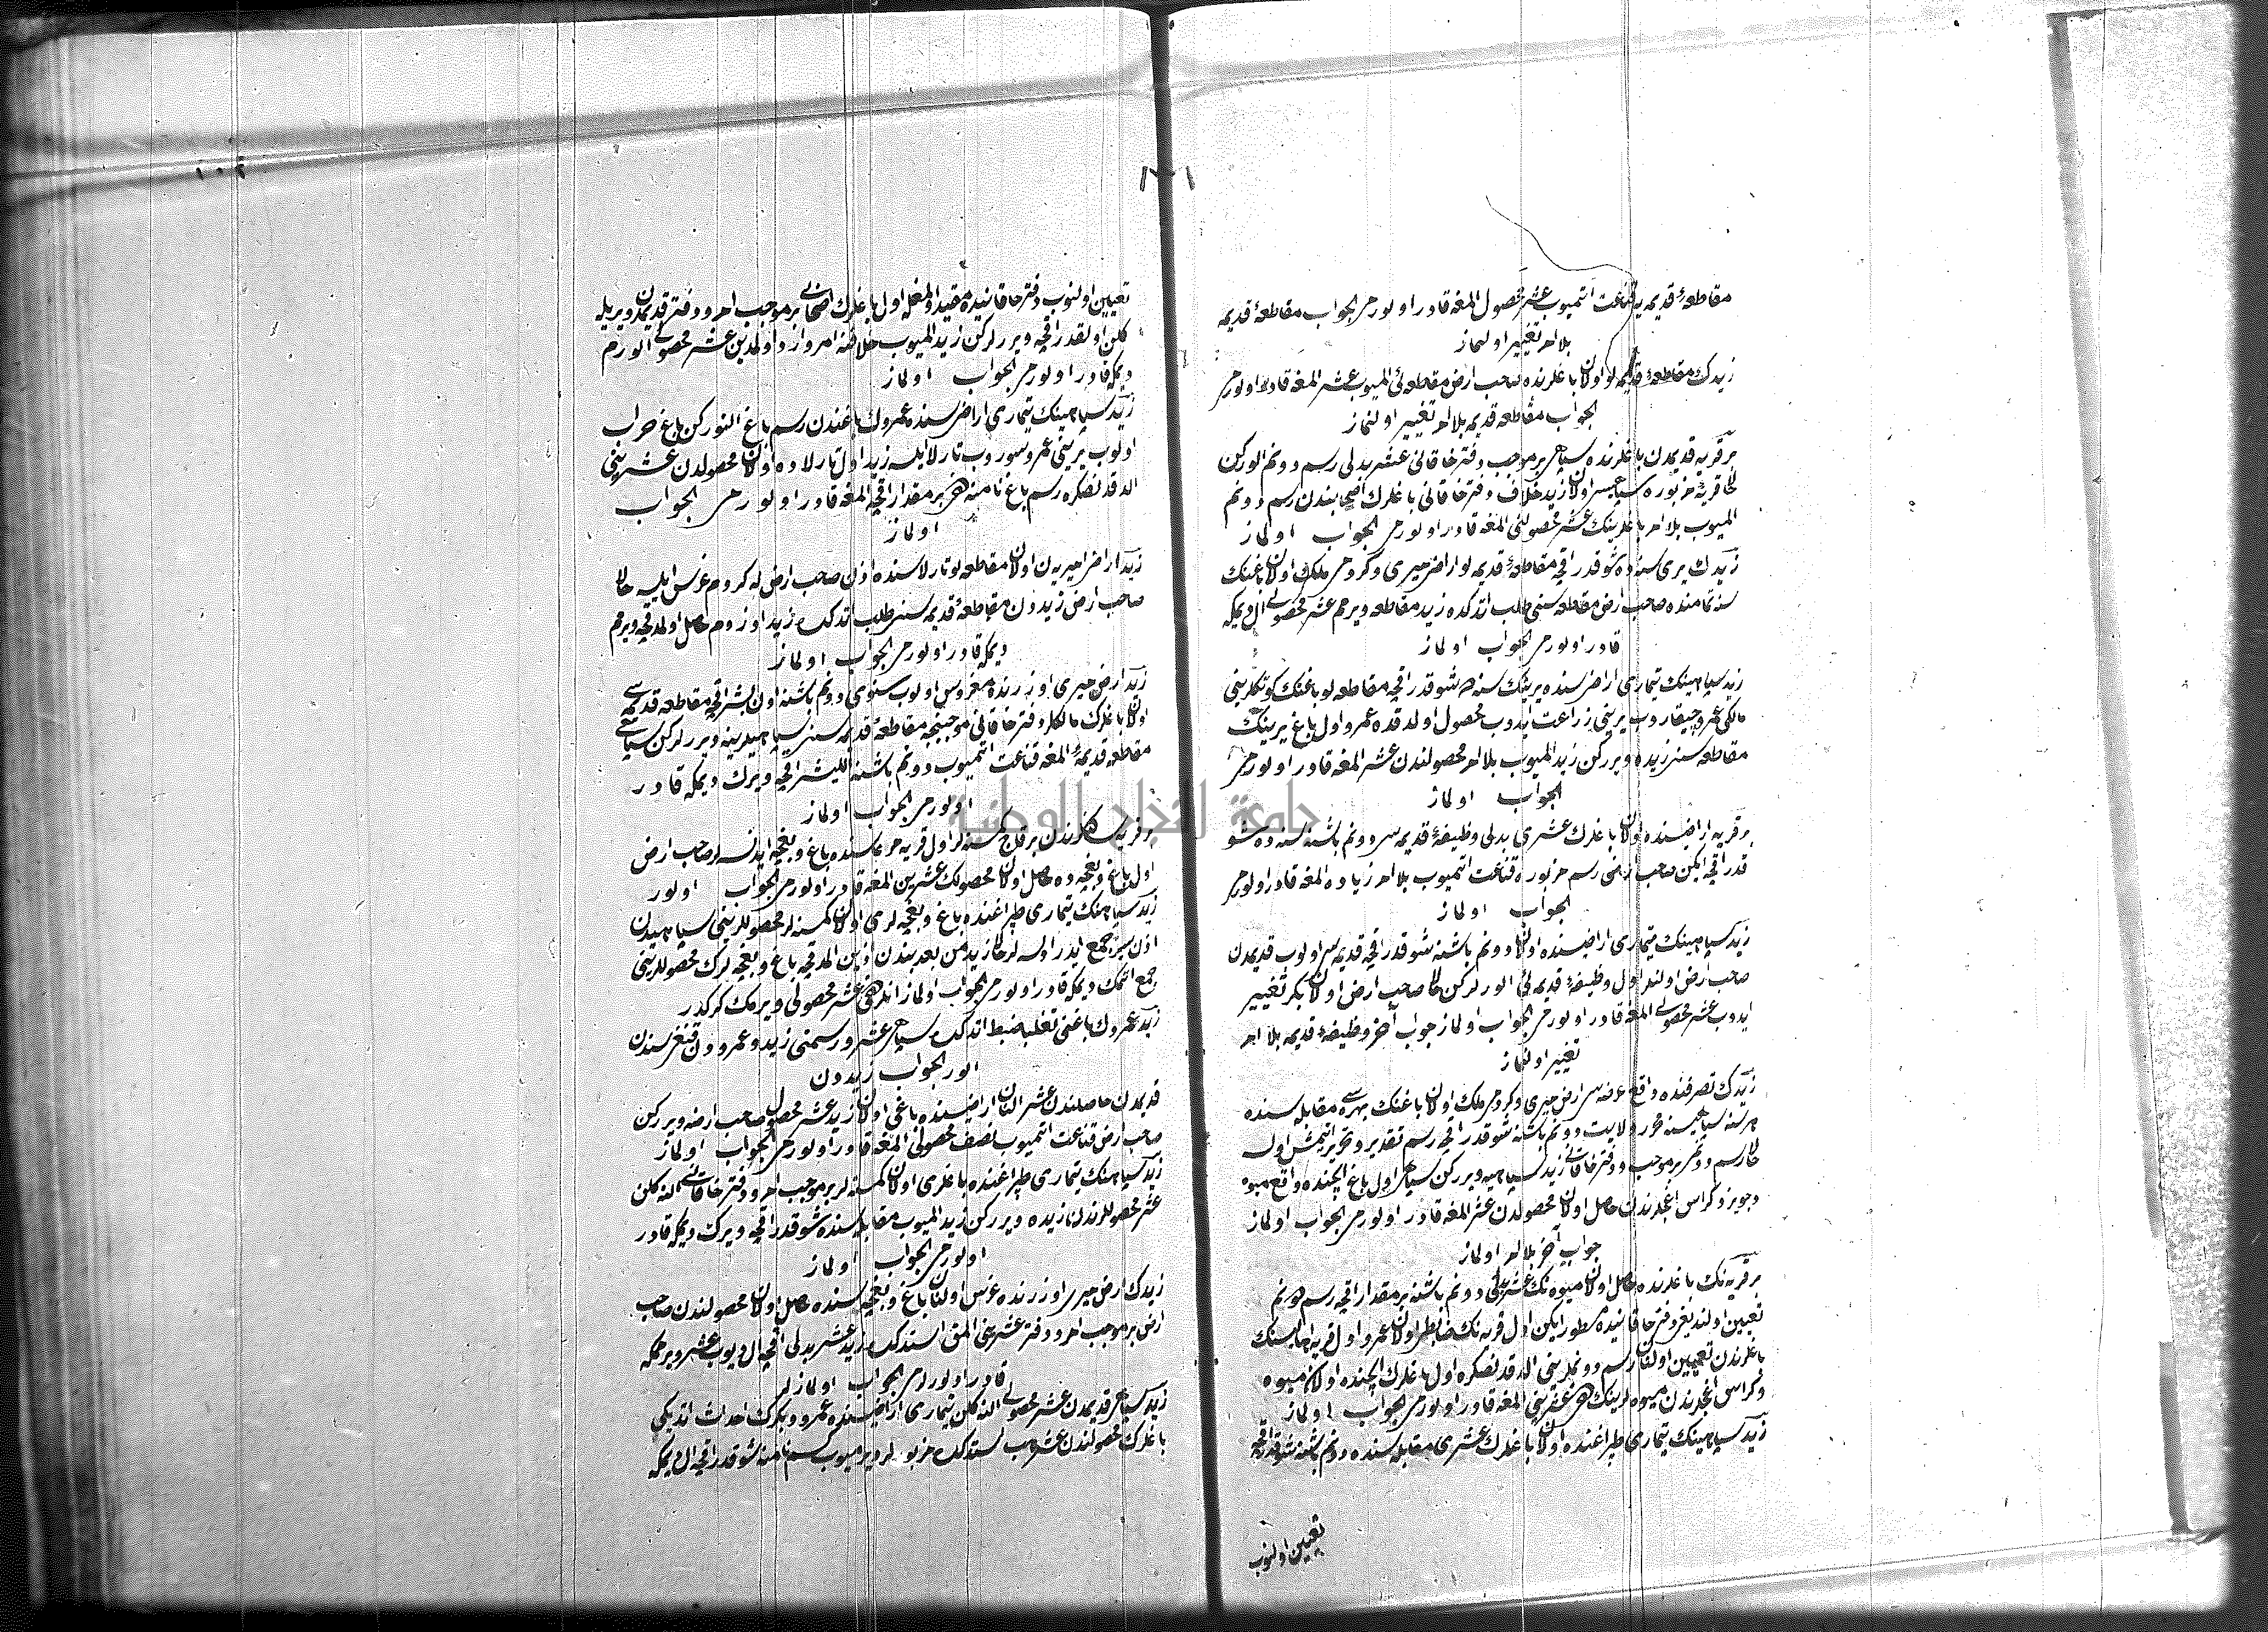 مقاطعۀ قدیمه یه قناعت اتمیوب عشر محصول المغه قادر اولورمی الجواب مقاطعۀ قدیمه
بلا امر تغییر اولنماز
زیدك مقاطعۀ قدیمه لو اولان باغلرنده صاحب ارض مقاطعه ئی المیوب عشر المغه قادر اولورمی
الجواب مقاطعه قدیمه بلا امر تغییر اولنماز
بر قریه قدیمدن باغلرنده سپاهی بر موجب دفتر خاقانی عشر بدلی رسم دونم الورکن
حالا قریۀ مزبوره سپاهیسی اولان زید خلاف دفتر خاقانی باغلرك اصحابندن رسم دونم
المیوب بلا امر باغلرینك عشر محصولنی المغه قادر اولورمی الجواب اولماز
زیدك یری سنه ده شو قدر اقچه مقاطعۀ قدیمه لو اراضی میری وکرومی ملك اولان باغنك
سنه تمامنده صاحب ارض مقاطعه سنی طلب اتدکده زید مقاطعه ویرمم عشر محصولی ال دیمکه
قادر اولورمی الجواب اولماز
زید سپاهینك تیماری اراضیسنده یرینك سنه ده شو قدر اقچه مقاطعه لو باغنك کوتکلرینی
مالکی عمرو چیقاروب یرینی زراعت ایدوب محصول اولدقده عمرو اول باغ یرینك
مقاطعه سنی زیده ویررکن زید المیوب بلا امر محصولندن عشر المغه قادر اولورمی
الجواب اولماز
بر قریه اراضیسنده اولان باغلرك عشری بدلی وظیفۀ قدیمه سی دونم باشنه سنه ده شو
قدر اقچه ایکن صاحب ارض رسم مزبوره قناعت اتمیوب بلا امر زیاده المغه قادر اولورمی
الجواب اولماز
زید سپاهینك تیماری اراضیسنده اولان دونم باشنه شو قدر اقچه قدیمه سی اولوب قدیمدن
صاحب ارض اولنلر اول وظیفۀ قدیمه ئی الورلرکن حالا صاحب ارض اولان بکر تغییر
ایدوب عشر محصولی المغه قادر اولورمی الجواب اولماز جواب آخر وظیفۀ قدیمه بلا امر
تغییر اولنماز
زیدك تصرفنده واقع عرصه سی ارض میری وکرومی ملك اولان باغنك بهر مقابله سنده
هر سنه سپاهیسنه محرر ولایت دونم باشنه شو قدر اقچه رسم تقدیر و تحریر اتمش اولسه
حالا رسم دونمی بر موجب دفتر خاقانی زید سپاهیه ویررکن سپاهی اول باغ ایچنده واقع میوه
وجویز وکراس اغجلرندن حاصل اولان محصولدن عشر المغه قادر اولورمی الجواب اولماز
جواب آخر بلا امر اولماز
بر قریه نك باغلرنده حاصل اولان میوه نك عشر بدلی دونم باشنه بر مقدار اقچه رسم دونم
تعیین اولندیغی دفتر خاقانیده مسطور ایکن اول قریه نك ضابطی اولان عمرو اول قریه اهالیسنك
باغلرندن تعیین اولنان رسم دونملرینی الدقدنصکره اول باغلرك ایچنده اولان میوه
وکراس اغجلرندن میوه لرینك دخی عشرینی المغه قادر اولورمی الجواب اولماز
زید سپاهینك تیماری طپراغنده اولان باغلرك عشری مقابله سنده دونم باشنه شو قدر اقچه
تعیین اولنوب
١٠٢
تعیین اولنوب دفتر خاقانیده مقید اولمغله اول باغلرك اصحابی بر موجب امر و دفتر قدیمدن ویریله
کلن اولقدر اقچه ویررلرکن زید المیوب خلافنه امر وارد اولمدین عشر محصولی الورم
دیمکه قادر اولورمی الجواب اولماز
زید سپاهینك تیماری اراضیسنده عمروك باغندن رسم باغ النورکن باغ خراب
اولوب یرینی عمرو سوروب تارلا ایلسه زید اول تارلاده اولان محصولدن عشرینی
الدقدنصکره رسم باغ نامنه دخی بر مقدار اقچه المغه قادر اولورمی الجواب
اولماز
زید اراضی میریه دن اولان مقاطعه لو تارلاسنده اذن صاحب ارض له کروم غرس ایلسه حالا
صاحب ارض زیددن مقاطعۀ قدیمه سنی طلب اتدکده زید اوزوم حاصل اولمدقچه ویرمم
دیمکه قادر اولورمی الجواب اولماز
زید ارض میری اوزرنده مغروس اولوب سنوی دونم باشنه اون بشر اقچه مقاطعه قدیمه سی
اولان باغلرك مالکلری دفتر خاقانی موجبنجه مقاطعۀ قدیمه سنی سپاهیلرینه ویررلرکن سپاهی
مقاطعه قدیمۀ المغه قناعت اتمیوب دونم باشنه اللیشر اقچه ویرك دیمکه قادر
اولورمی الجواب اولماز
بر قریه اهالیلرندن بر قاچ کمسنه لر اول قریه مرعاسنده باغ و باغچه ایدنسه لر صاحب ارض
اول باغ و باغچه ده حاصل اولان محصولك عشرین المغه قادر اولورمی الجواب اولور
زید سپاهینك تیماری طپراغنده باغ و باغچه لری اولان کمسنه لر محصوللرینی سپاهیدن
اذن سز جمع ایدر اولسه لر حالا زید من بعد بندن اذن المدقچه باغ و باغچه لرك محصوللرینی
جمع اتمك دیمکه قادر اولورمی الجواب اولماز انلر دخی عشر محصولی ویرمك کرکدر
زید عمروك باغنی تغلبا ضبط اتدکده سپاهی عشر و رسمنی زید و عمرودن قنغیسندن
الور الجواب زیددن
قدیمدن حاصلندن عشر النان اراضیسنده باغی اولان زید عشر محصول صاحب ارضه ویررکن
صاحب ارض قناعت اتمیوب نصف محصولنی المغه قادر اولورمی الجواب اولماز
زید سپاهینك تیماری طپراغنده باغلری اولان کمسنه لر بر موجب امر و دفتر خاقانی النه کلن
عشر محصوللرندن زیده ویررکن زید المیوب مقابله سنده شو قدر اقچه ویرك دیمکه قادر
اولورمی الجواب اولماز
زیدك ارض میری اوزرنده غرس اولنان باغ و باغچه سنده حاصل اولان محصولندن صاحب
ارض بر موجب امر و دفتر عشرینی المق استدکده زید عشر بدلی اقچه ال دیوب عشر ویرممکه
قادر اولورلرمی الجواب اولمازلر
زید سپاهی قدیمدن عشر محصولی النه کلن تیماری اراضیسنده عمرو و بکرك احداث اتدیکی
باغلرك محصولندن عشر طلب استدکده مزبورلر ویرمیوب رسم نامنه شو قدر اقچه ال دیمکه